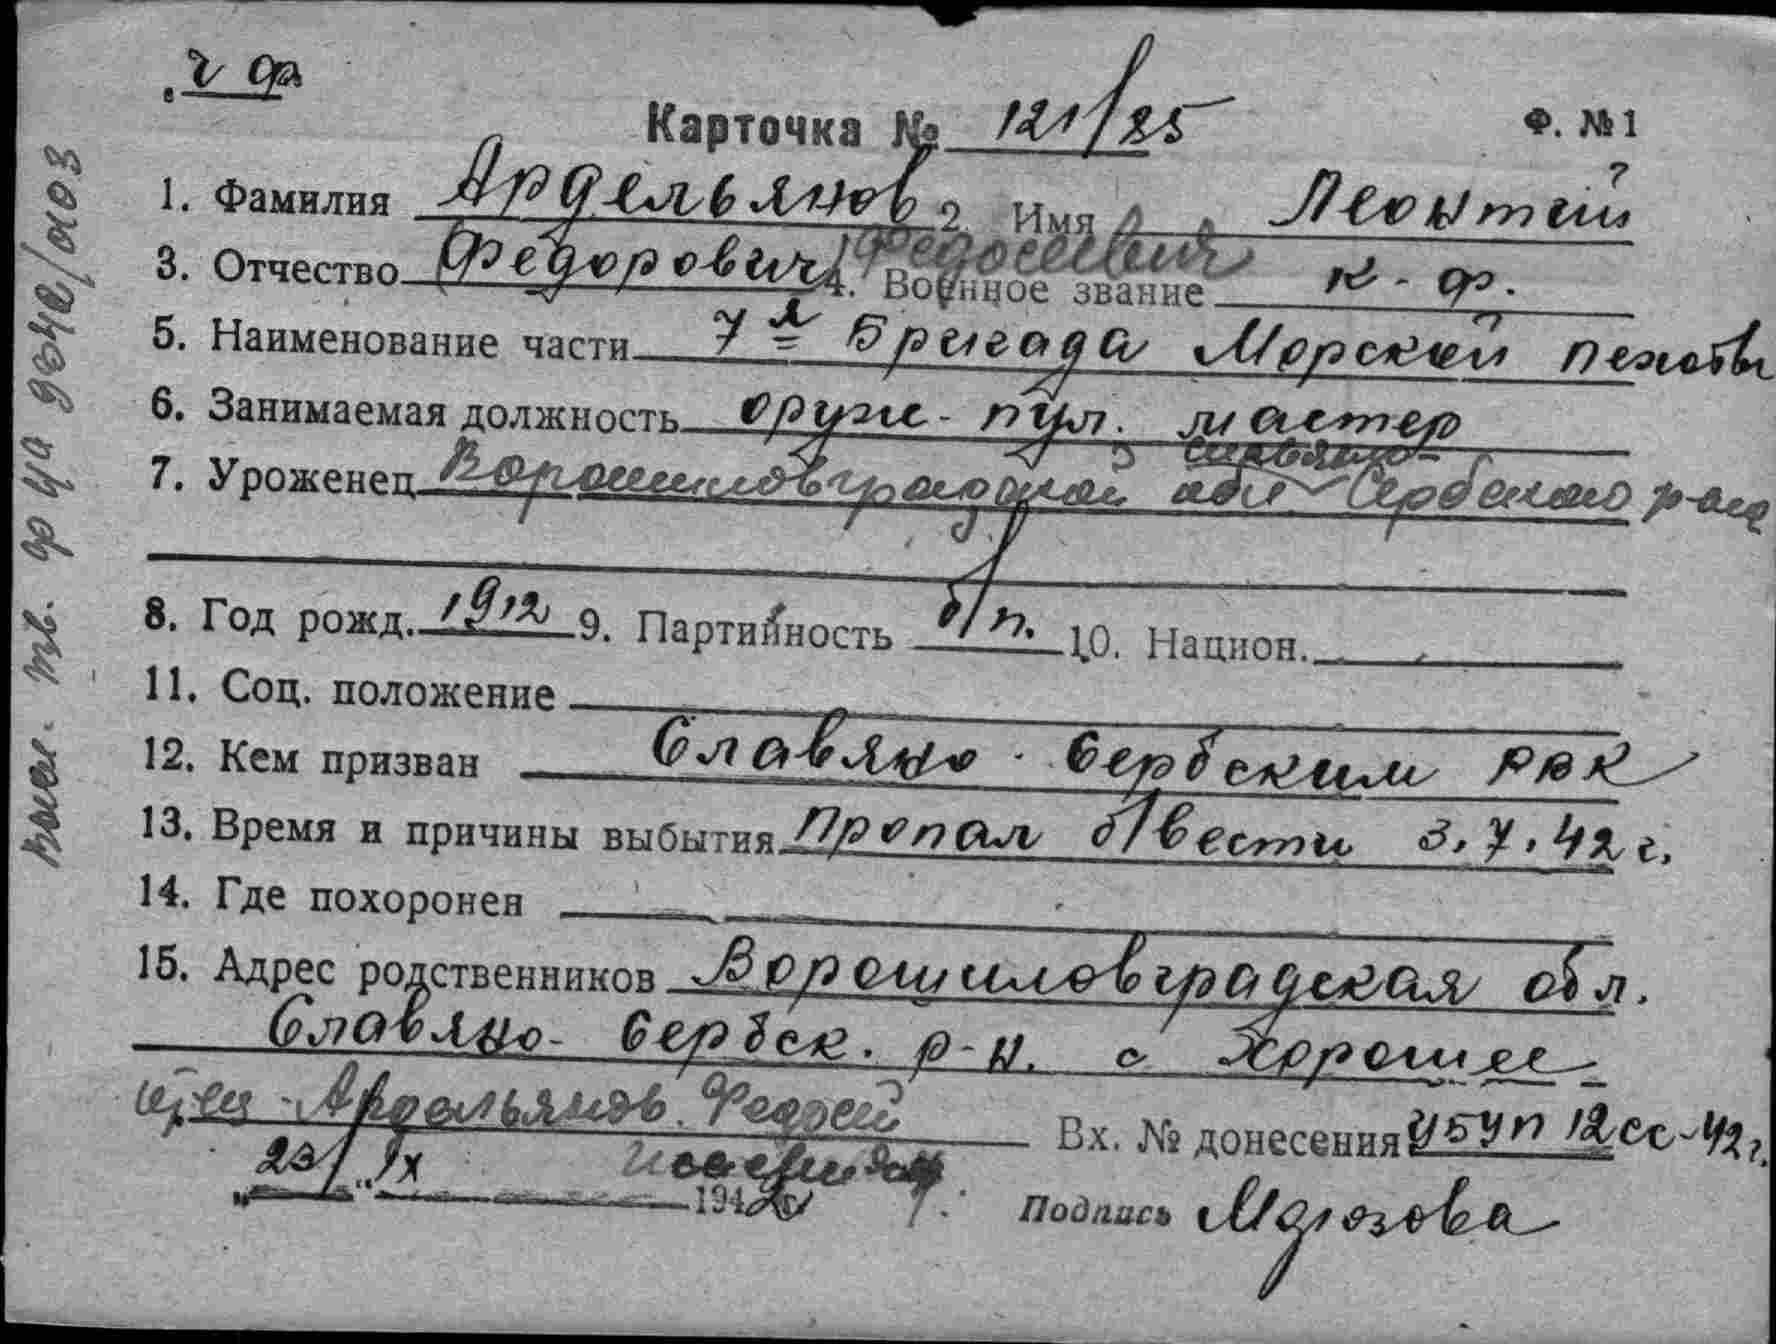 ч ф
Карточка № 121/85 Ф. №1
1. Фамилия Ардельянов 2. Имя Леонтий
3. Отчество Федорович (Федосеевич 4. Военное звание к-ф.
5. Наименование части 7я Бригада Морской пехоты
6. Занимаемая должность оруж-пул. мастер
Славяно-
7. Уроженец Ворошиловградской обл Сербского р-на
8. Год рожд. 1912 9. Партийность б/п. 10. Национ.
11. Соц. положение
12. Кем призван Славяно-Сербским РВК
13. Время и причины выбытия Пропал б/вести 3.7.42г.
14. Где похоронен
15. Адрес родственников Ворошиловградская обл.
Славяно-Сербск. р-н. с Хорошее
отец - Ардельянов Федосей
Вх. № донесения УБУП 12сс-42г.
„23“ IX 1942 г. Подпись